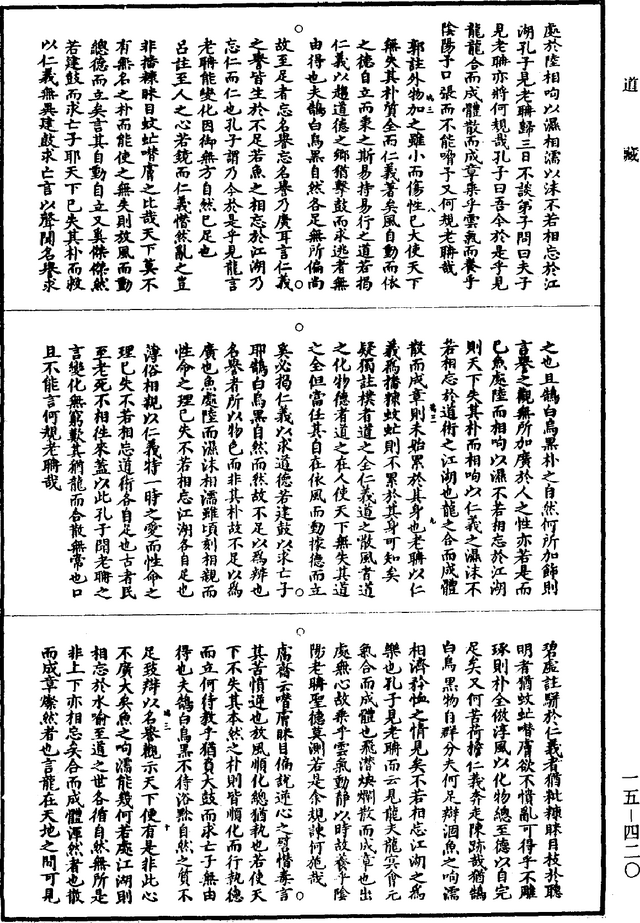 道藏
處於陸相呴以濕相濡以沫不若相忘於江
湖孔子見老聃歸三日不談弟子問曰夫子
見老聃亦將何規哉孔子曰吾今於是乎見
龍龍合而成體散而成章乘乎雲氣而養乎
陰陽予口張而不能嗋予又何規老聃哉
郭註外物加之雖小而傷性已大使天下
無失其朴質全而仁義著矣風自動而依
之德自立而秉之斯易持易行之道若揭
仁義以趨道德之鄉猶擊鼓而求逃者無
由得也夫鵠白烏黑自然各足無所偏尚
故至足者忘名譽忘名譽乃廣耳言仁義
之譽皆生於不足若魚之相忘於江湖乃
忘仁而仁也孔子謂乃今於是乎見龍言
老聃能變化因御無方自然已足也
呂註至人之心若鏡而仁義憯然亂之豈
非播糠眯目蚊虻噆膚之比哉天下莫不
有無名之朴而能使之無失則放風而動
總德而立矣言其自動自立又奚傑傑然
若建鼓而求亡子耶天下已失其朴而救
以仁義無異建鼓求亡言以聲聞名譽求
之也且鵠白烏黑朴之自然何所加飾則
言譽之觀無所加廣於人之性亦若是而
已魚處陸而相呴以濕不若相忘於江湖
則天下失其朴而相呴以仁義之濕沫不
若相忘於道術之江湖也龍之合而成體
散而成章則未始累於其身也老聃以仁
義為播糠蚊虻則不累於其身可知矣
疑獨註樸者道之全仁義道之散風者道
之化物德者道之在人使天下無失其道
之全但當任其自在依風而動據德而立
奚必揭仁義以求道德若建鼓以求亡子
耶鵠白烏黑自然而然故不足以為辨也
名譽者所以物色而非其朴故不足以為
廣也魚處陸而濕沫相濡雖頃刻相親而
性命之理已失不若相忘江湖各自足也
薄俗相親以仁義特一時之愛而性命之
理已失不若相忘道術各自足也古者民
至老死不相往來蓋以此孔子問老聃之
言變化無窮歎其猶龍而合散無常也口
且不能言何規老聃哉
碧虛註駢於仁義者猶粃糠眯目枝於聰
明者猶蚊虻噆膚欲不憒亂可得乎不雕
琢則朴全倣淳風以化物總至德以自完
足矣又何苦荷擔仁義奔走陳跡哉猶鵠
白烏黑物自群分夫何足辯涸魚之呴濡
相濟矜恤之情見矣不若相忘江湖之為
樂也孔子見老聃而云見龍夫龍冥會元
氣合而成體也飛潛煥爛散而成章也出
處無心故乘乎雲氣動靜以時故養乎陰
陽老聃聖德莫測若是余規諫何施哉
鬳齋云噆膚眯目偏說逆心之譬憯毒言
其苦憤逆也放風順化總猶執也若使天
下不失其本然之朴則皆順化而行執德
而立何待教乎猶負大鼓而求亡子無由
得也夫鵠白烏黑不待浴黔自然之質不
足致辯以名譽觀示天下便有是非此心
不廣大矣魚之呴濡能幾何若處江湖則
相忘於水喻至道之世各循自然無所是
非上下亦相忘矣合而成體渾然者也散
而成章燦然者也言龍在天地之間可見
一五—四二〇